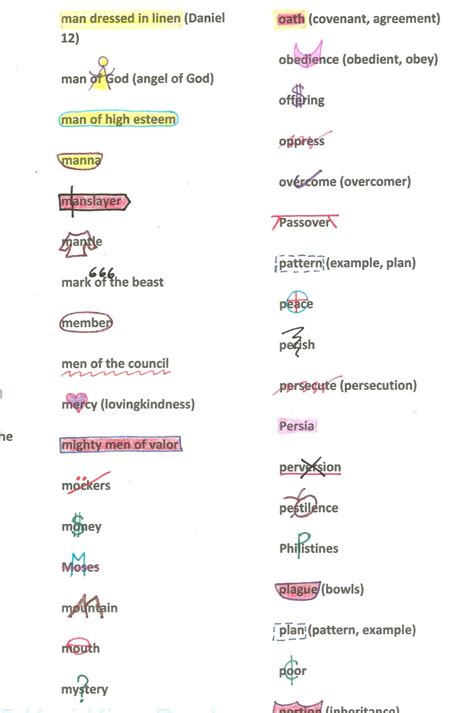 man dressed in linen (Daniel
12)
man of God (angel of God)
man of high esteem
manna
manslayer
mantle
666
mark of the beast
member
men of the council
mercy (lovingkindness)
mighty men of valor
mockers
money
Moses
mountain
mouth
mystery
oath (covenant, agreement)
obedience (obedient, obey)
offering
oppress
overcome (overcomer)
Passover
pattern (example, plan)
peace
perish
persecute (persecution)
Persia
perversion
pestilence
Philistines
plague (bowls)
plan (pattern, example)
poor
portion (inheritance)